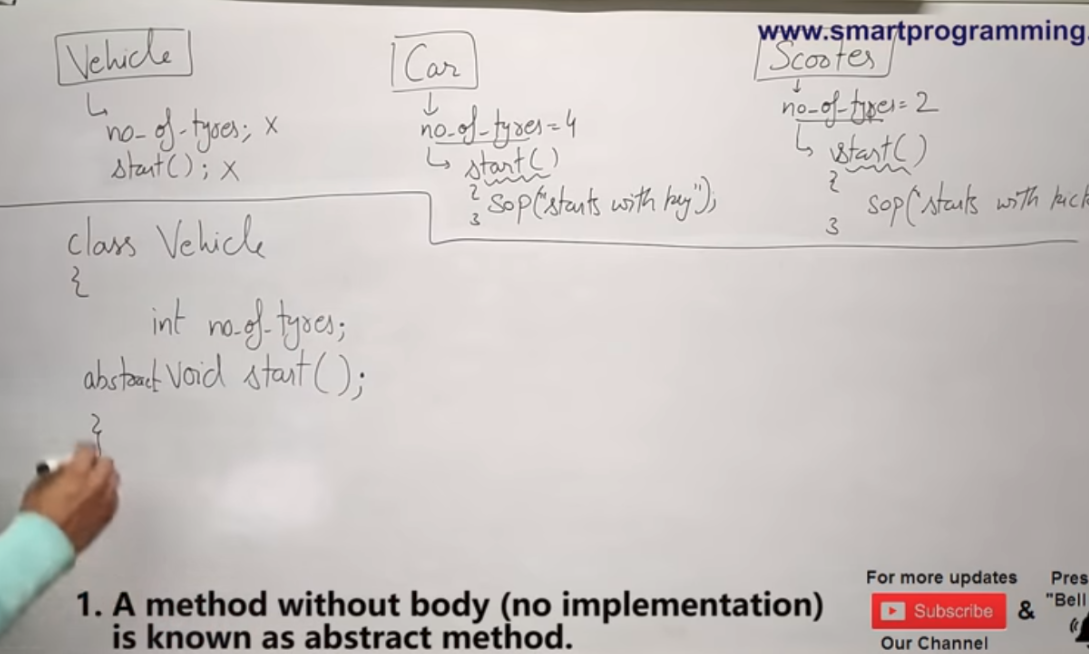 www.smartprogramming.
Vehicle
no-of-tyres; x
start(); x
Car
no-of-tyres=4
start()
{ sop("starts with key");
}
Scooter
no-of-types=2
start()
{
sop("starts with kick
}
class Vehicle
{
int no-of-tyres;
abstract void start();
}
1. A method without body (no implementation)
is known as abstract method.
For more updates
Subscribe
Our Channel
&
Pres
"Bell